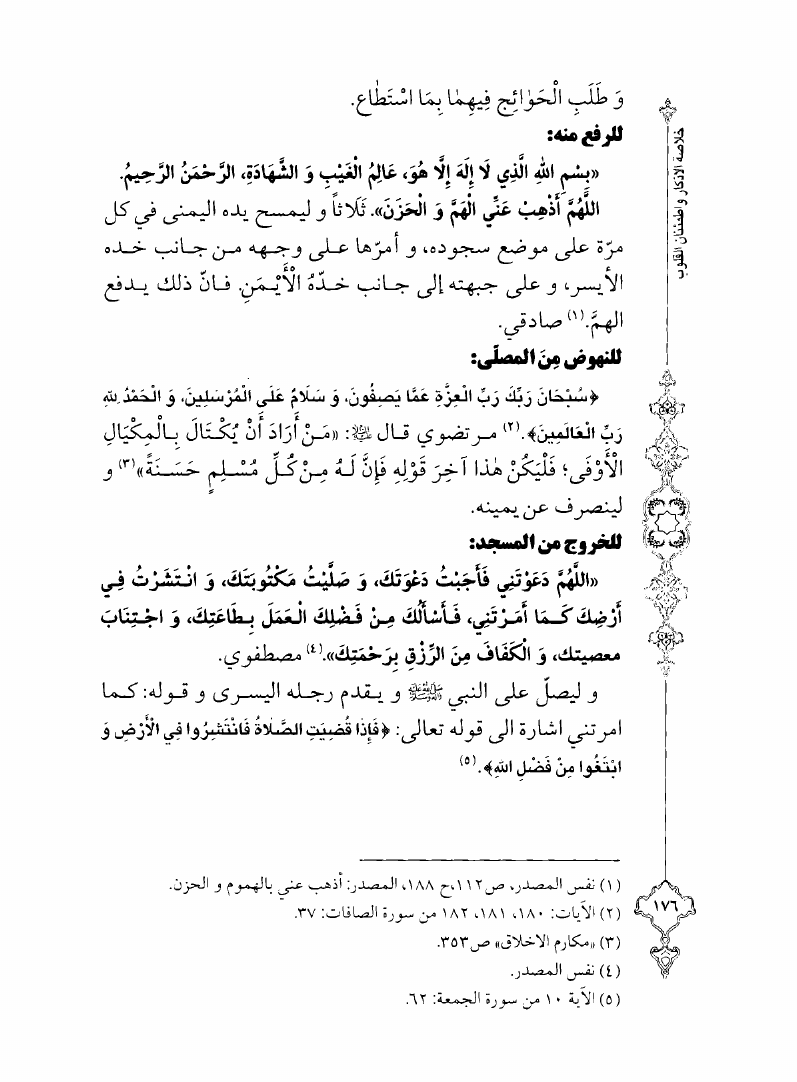 وَ طَلَبِ الْحَوٰائِجِ فِيهِمٰا بِمَا اسْتَطٰاع.
للرفع منه:
«بِسْمِ اللهِ الَّذِي لَا إِلَهَ إِلَّا هُوَ، عَالِمُ الْغَيْبِ وَ الشَّهَادَةِ، الرَّحْمَنُ الرَّحِيمُ.
اللَّهُمَّ أَذْهِبْ عَنِّي الْهَمَّ وَ الْحَزَنَ». ثَلَاثاً و ليمسح يده اليمنى في كل
مرّة على موضع سجوده، و أمرّها على وجهه من جانب خده
الأيسر، و على جبهته إلى جانب خدّهُ الْأَيْمَنِ. فانّ ذلك يدفع
الهمَّ.(١) صادقي.
للنهوض مِنَ المصلّى:
﴿سُبْحَانَ رَبِّكَ رَبِّ الْعِزَّةِ عَمَّا يَصِفُونَ، وَ سَلَامٌ عَلَى الْمُرْسَلِينَ، وَ الْحَمْدُ لِلهِ
رَبِّ الْعَالَمِينَ﴾.(٢) مرتضوي قال ﷺ: «مَنْ أَرَادَ أَنْ يُكْتَالَ بِالْمِكْيَالِ
الْأَوْفَى؛ فَلْيَكُنْ هٰذا آخِرَ قَوْلِهِ فَإِنَّ لَهُ مِنْ كُلِّ مُسْلِمٍ حَسَنَةً»(٣) و
لينصرف عن يمينه.
للخروج من المسجد:
«اللَّهُمَّ دَعَوْتَنِي فَأَجَبْتُ دَعْوَتَكَ، وَ صَلَّيْتُ مَكْتُوبَتَكَ، وَ انْتَشَرْتُ فِي
أَرْضِكَ كَمَا أَمَرْتَنِي، فَأَسْأَلُكَ مِنْ فَضْلِكَ الْعَمَلَ بِطَاعَتِكَ، وَ اجْتِنَابَ
معصيتك، وَ الْكَفَافَ مِنَ الرِّزْقِ بِرَحْمَتِكَ».(٤) مصطفوي.
و ليصلّ على النبي ﷺ و يقدم رجله اليسرى و قوله: كما
امرتني اشارة الى قوله تعالى: ﴿فَإِذَا قُضِيَتِ الصَّلَاةُ فَانْتَشِرُوا فِي الْأَرْضِ وَ
ابْتَغُوا مِنْ فَضْلِ اللهِ﴾.(٥)
(١) نفس المصدر، ص١١٢،ح ١٨٨، المصدر: أذهب عني بالهموم و الحزن.
(٢) الآيات: ١٨٠، ١٨١، ١٨٢ من سورة الصافات: ٣٧.
(٣) «مكارم الاخلاق» ص٣٥٣.
(٤) نفس المصدر.
(٥) الآية ١٠ من سورة الجمعة: ٦٢.
خلاصة الاذكار و اطمئنان القلوب
١٧٦